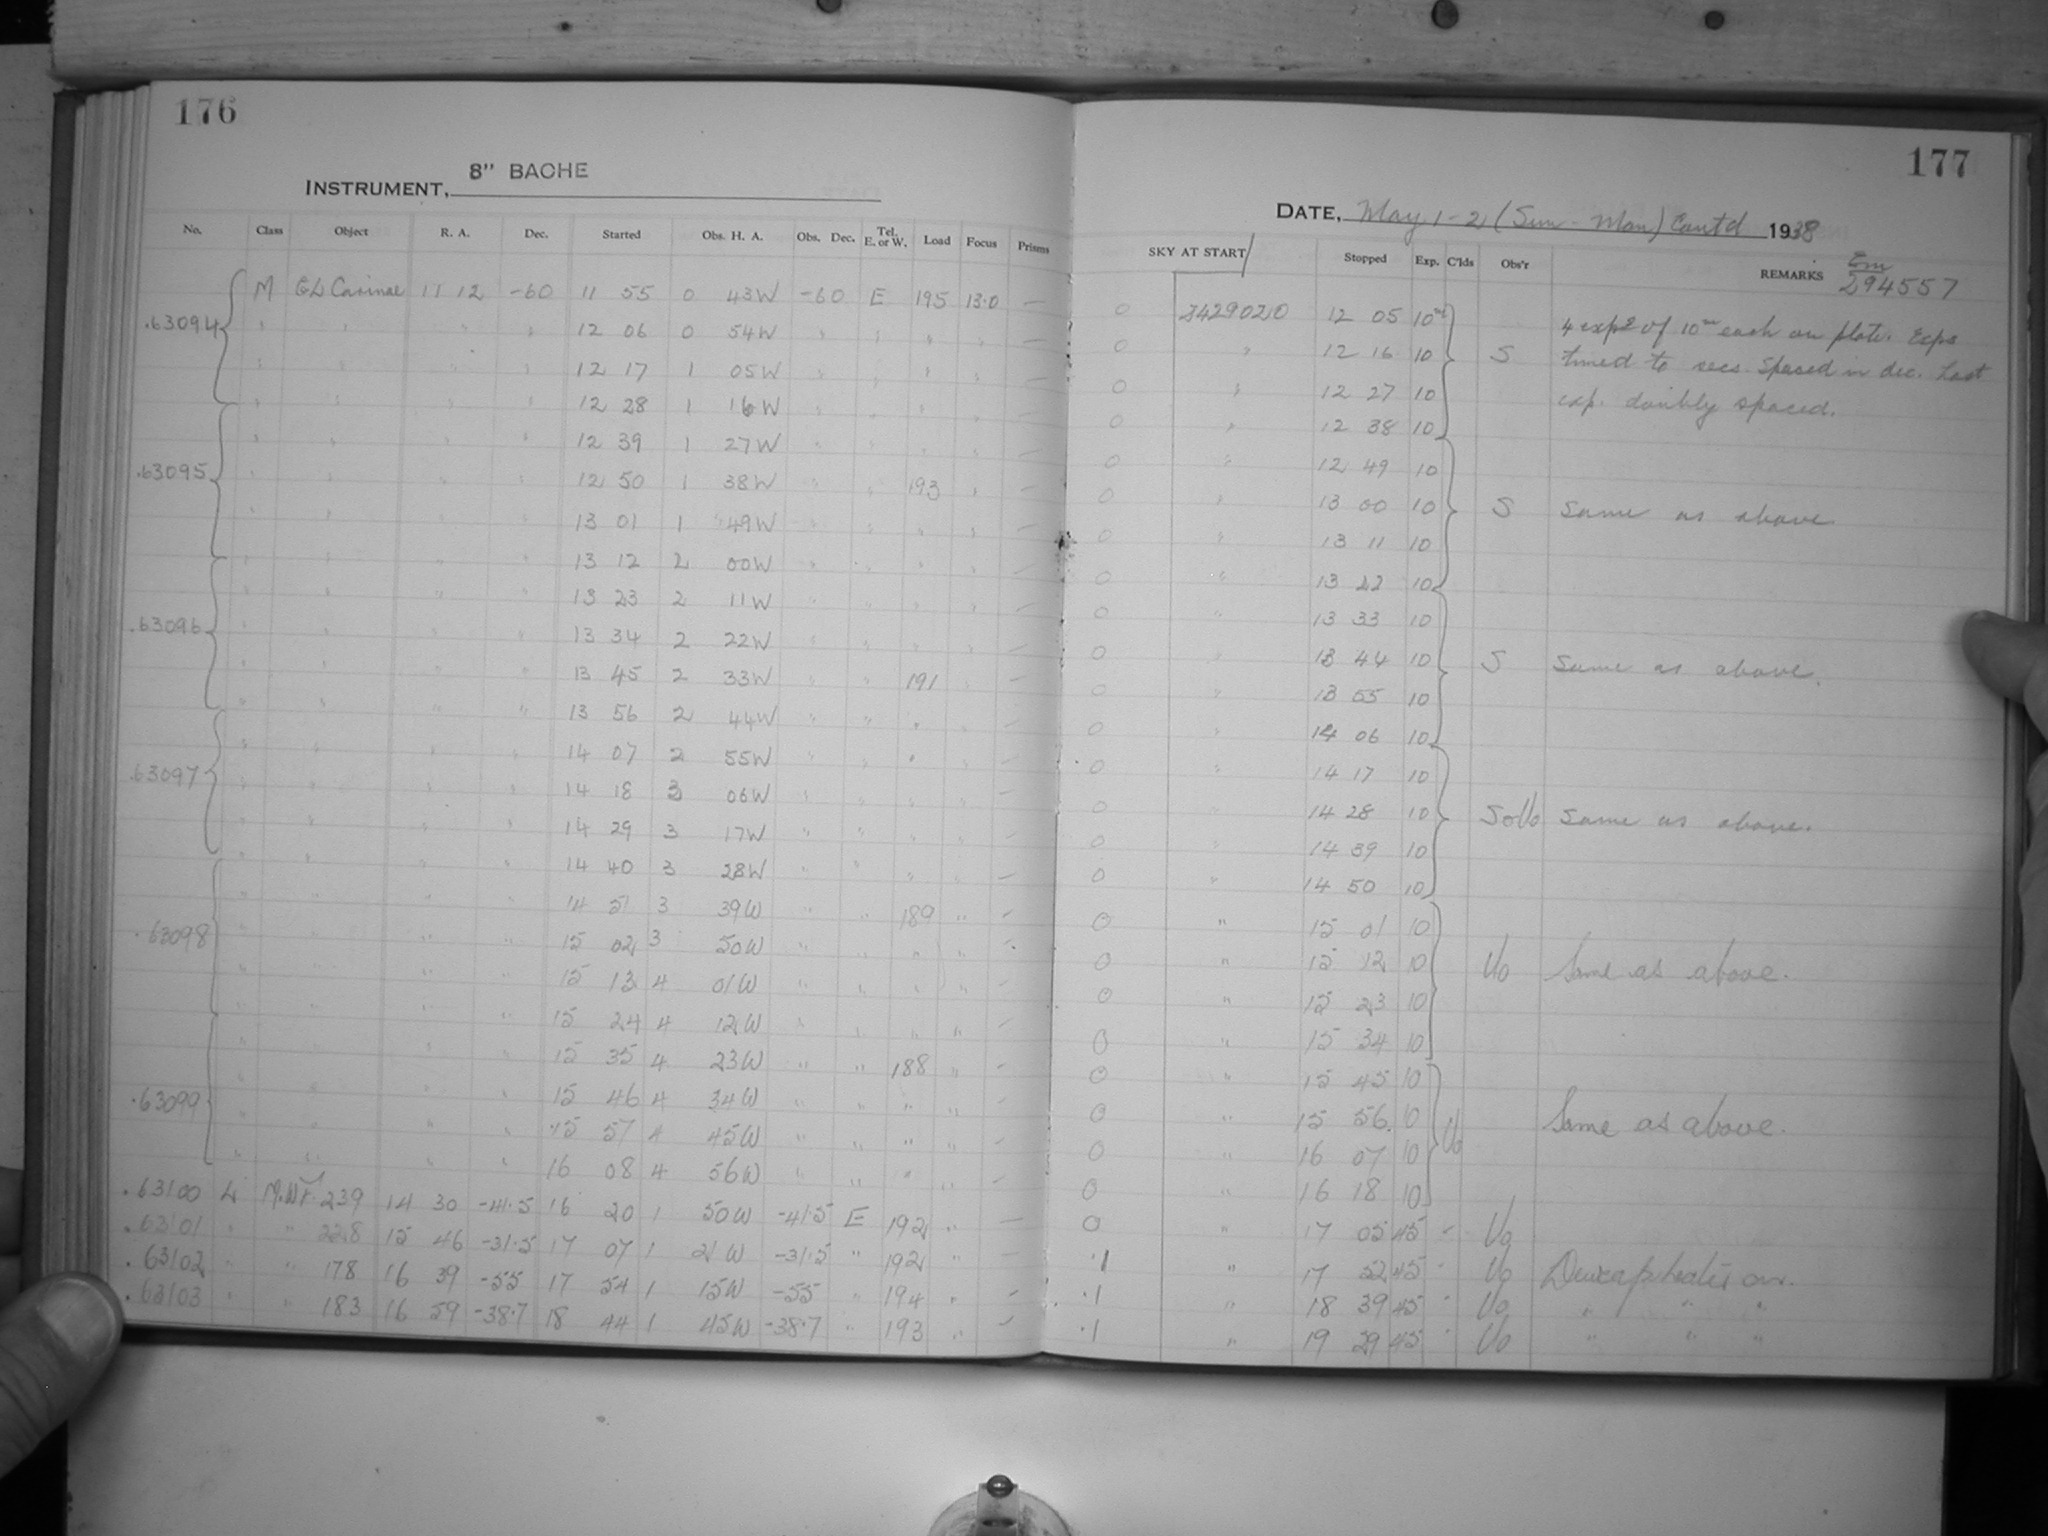 176
INSTRUMENT, 8" BACHE
No. Class Object R. A. Dec. Started Obs. H. A. Obs. Dec. Tel. E. or W. Load Focus Prisms
.63094 M Carinae 11 12 -60 11 55 0 43W -60 E 195 13.0 —
" " " " 12 06 0 54W " " " " —
" " " " 12 17 1 05W " " " " —
" " " " 12 28 1 16W " " " " —
.63095 " " " " 12 39 1 27W " " " " —
" " " " 12 50 1 38W " " 193 " —
" " " " 13 01 1 49W " " " " —
" " " " 13 12 2 00W " " " " —
.63096 " " " " 13 23 2 11W " " " " —
" " " " 13 34 2 22W " " " " —
" " " " 13 45 2 33W " " 191 " —
" " " " 13 56 2 44W " " " " —
.63097 " " " " 14 07 2 55W " " " " —
" " " " 14 18 3 06W " " " " —
" " " " 14 29 3 17W " " " " —
" " " " 14 40 3 28W " " " " —
.63098 " " " " 14 51 3 39W " " 189 " —
" " " " 15 02 3 50W " " " " —
" " " " 15 13 4 01W " " " " —
" " " " 15 24 4 12W " " " " —
.63099 " " " " 15 35 4 23W " " 188 " —
" " " " 15 46 4 34W " " " " —
" " " " 15 57 4 45W " " " " —
" " " " 16 08 4 56W " " " " —
.63100 L M.W.F. 239 14 30 -41.5 16 20 1 50W -41.5 E 192 " —
.63101 " " 228 15 46 -31.5 17 07 1 21W -31.5 " 192 " —
.63102 " " 178 16 39 -55 17 54 1 15W -55 " 194 " —
.63103 " " 183 16 59 -38.7 18 44 1 45W -38.7 " 193 " —
177
DATE, May 1-2 (Sun - Mon) Cont'd 1938
SKY AT START Stopped Exp. C'lds Obs'r REMARKS
294557
0 3429020 12 05 10m 4 exps of 10m each on plate. Exps
0 " 12 16 10 S timed to secs. Spaced in dec. Last
0 " 12 27 10 exp. doubly spaced.
0 " 12 38 10
0 " 12 49 10
0 " 13 00 10 S Same as above
0 " 13 11 10
0 " 13 22 10
0 " 13 33 10
0 " 13 44 10 S Same as above.
0 " 13 55 10
0 " 14 06 10
0 " 14 17 10
0 " 14 28 10 Same as above.
0 " 14 39 10
0 " 14 50 10
0 " 15 01 10
0 " 15 12 10 Uo Same as above.
0 " 15 23 10
0 " 15 34 10
0 " 15 45 10
0 " 15 56 10 Uo Same as above.
0 " 16 07 10
0 " 16 18 10
0 " 17 05 45 - Uo
.1 " 17 52 45 - Uo Dewcap heater on.
.1 " 18 39 45 - Uo " " "
.1 " 19 29 45 - Uo " " "